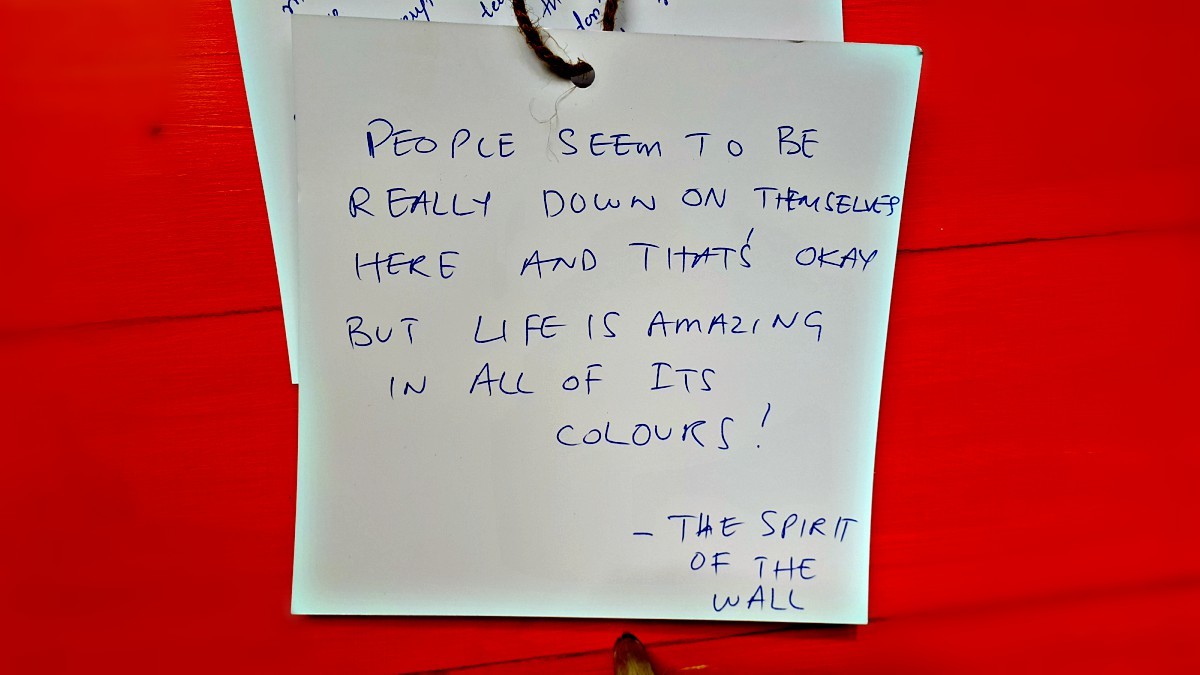 PEOPLE SEEM TO BE
REALLY DOWN ON THEMSELVES
HERE AND THAT'S OKAY
BUT LIFE IS AMAZING
IN ALL OF ITS
COLOURS!
- THE SPIRIT
OF THE
WALL